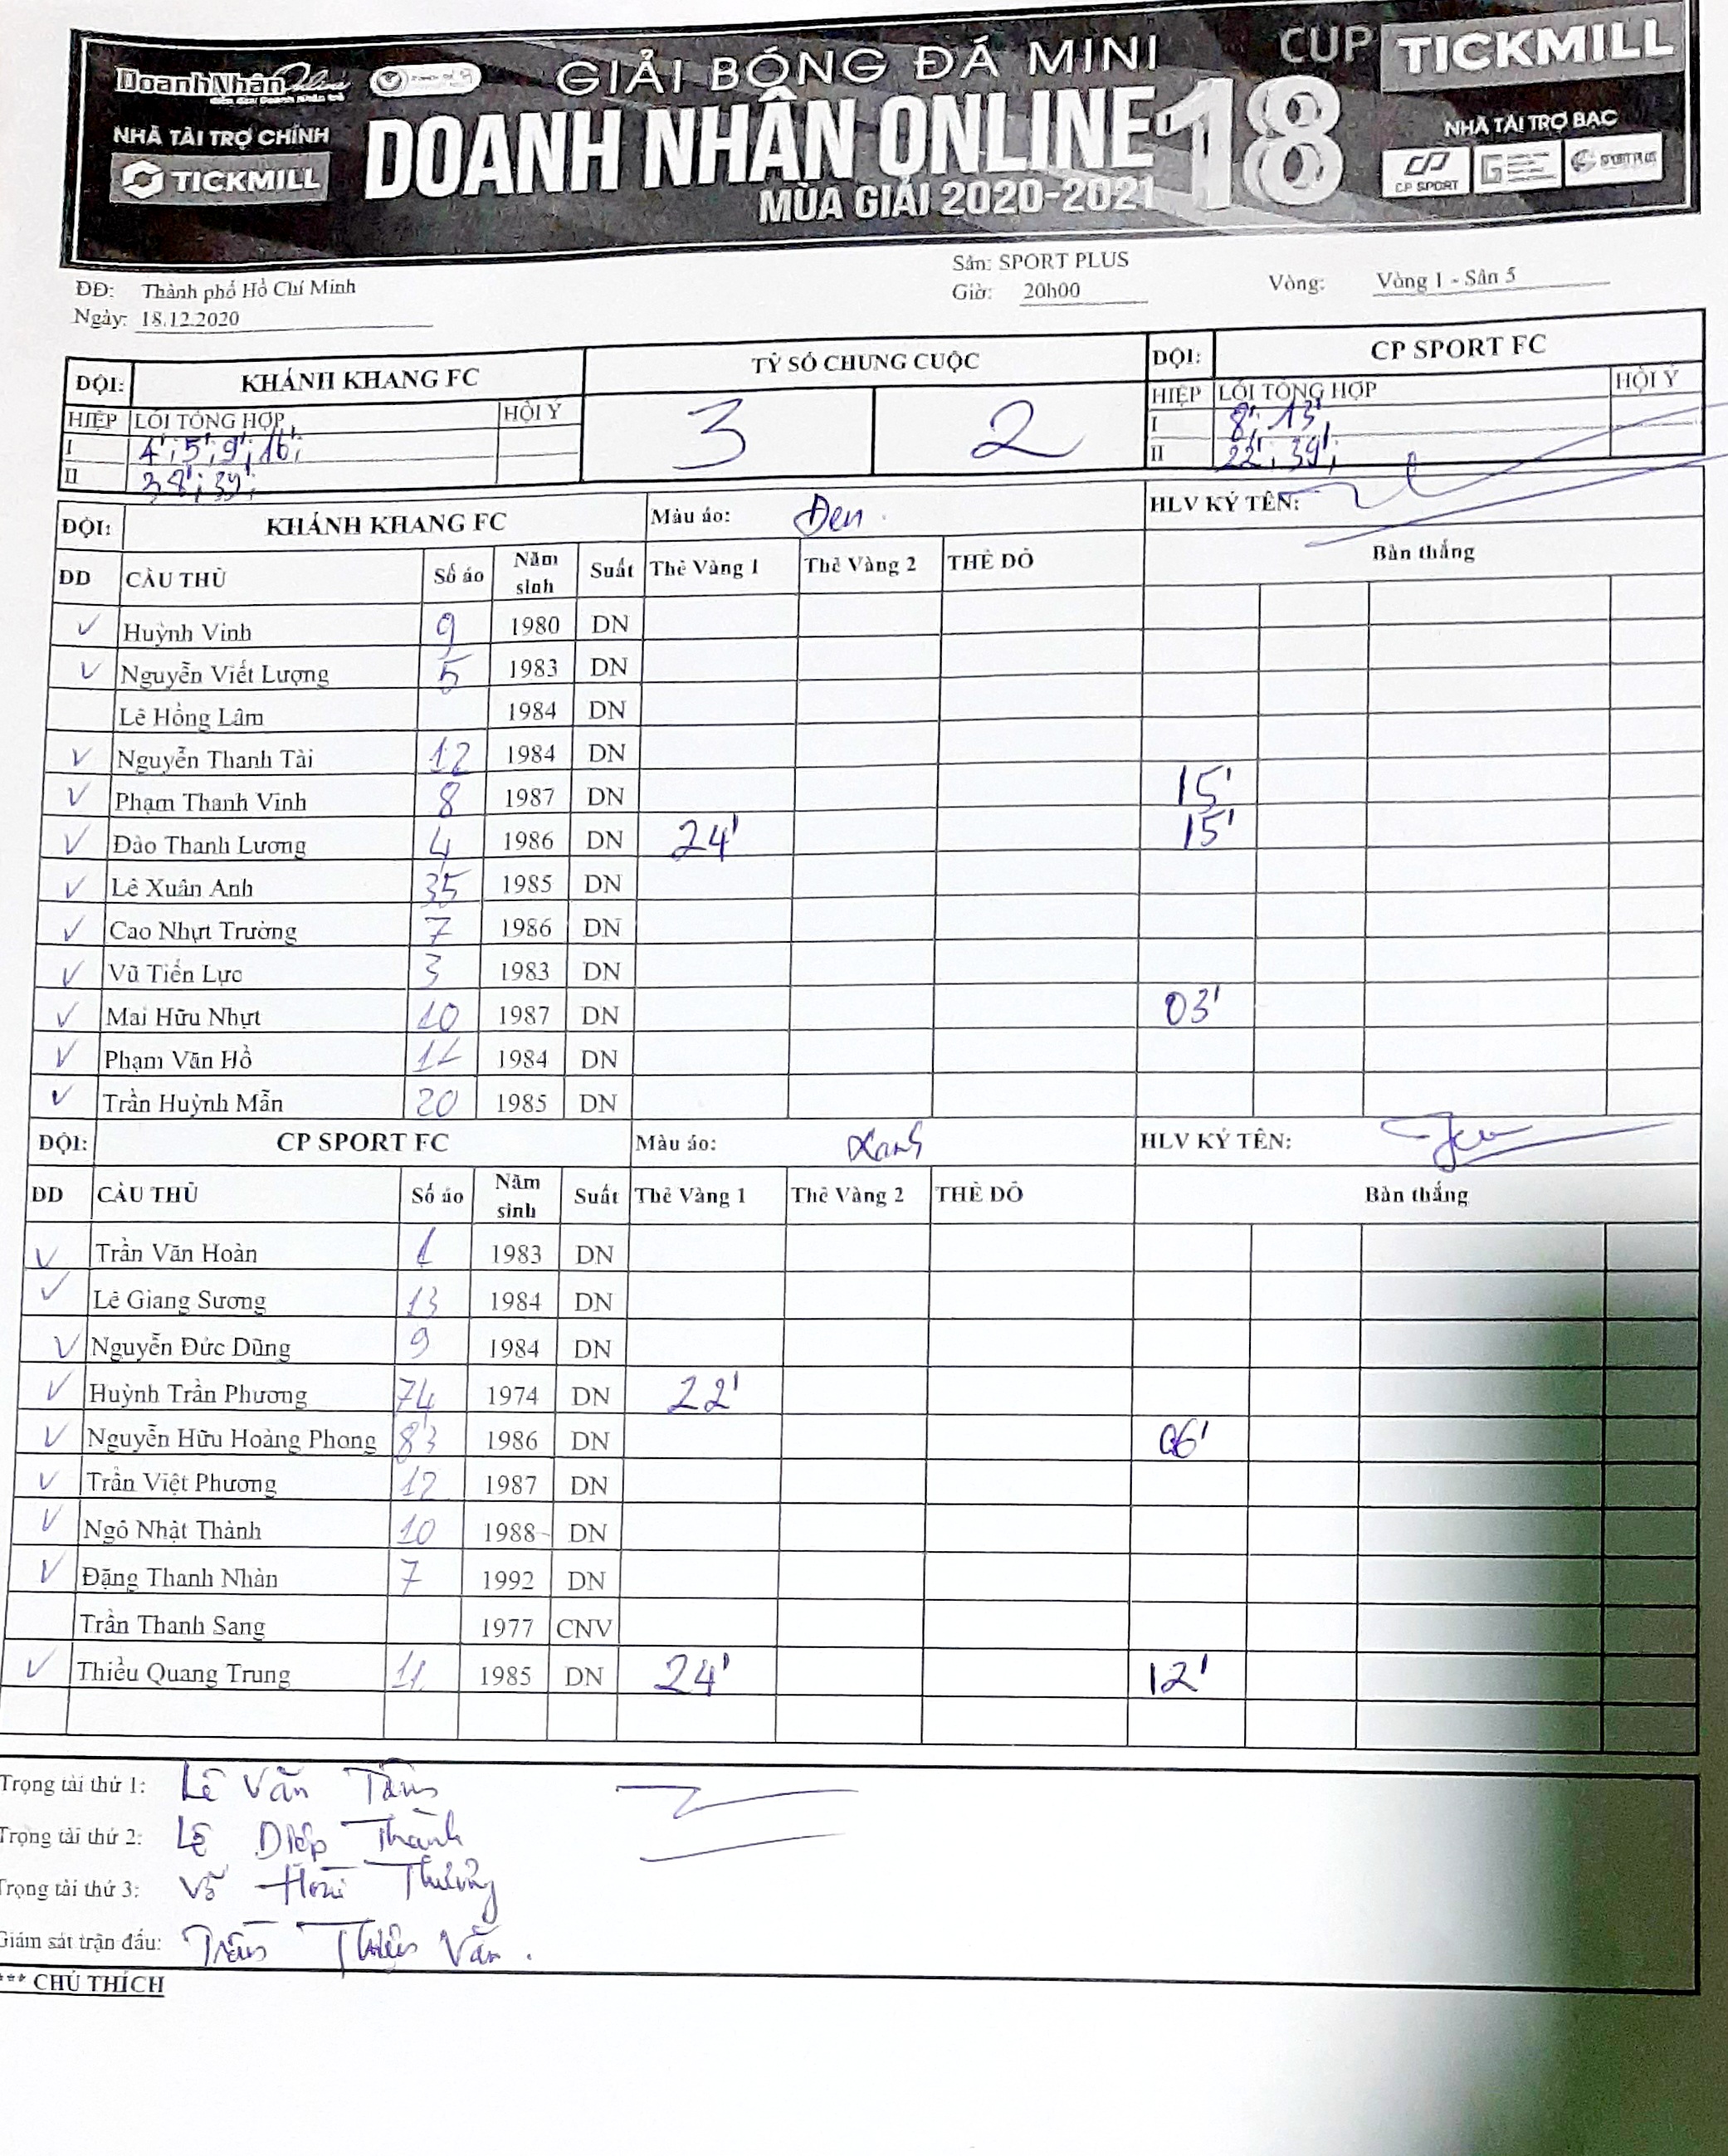 DoanhNhân Online
GIẢI BÓNG ĐÁ MINI
CUP TICKMILL
NHÀ TÀI TRỢ CHÍNH
DOANH NHÂN ONLINE 18
NHÀ TÀI TRỢ BẠC
TICKMILL
MÙA GIẢI 2020-2021
CP SPORT
SPORT PLUS
ĐĐ: Thành phố Hồ Chí Minh
Sân: SPORT PLUS
Ngày: 18.12.2020
Giờ: 20h00
Vòng: Vòng 1 - Sân 5
ĐỘI: KHÁNH KHANG FC
TỶ SỐ CHUNG CUỘC
ĐỘI: CP SPORT FC
HIỆP LỖI TỔNG HỢP HỘI Ý
3 2
HIỆP LỖI TỔNG HỢP HỘI Ý
I 4'; 5'; 9'; 16';
I 8'; 13'
II 38'; 39';
II 22'; 39';
ĐỘI: KHÁNH KHANG FC Màu áo: Đen HLV KÝ TÊN:
ĐD CẦU THỦ Số áo Năm sinh Suất Thẻ Vàng 1 Thẻ Vàng 2 THẺ ĐỎ Bàn thắng
✓ Huỳnh Vinh 9 1980 DN
✓ Nguyễn Viết Lượng 5 1983 DN
Lê Hồng Lâm 1984 DN
✓ Nguyễn Thanh Tài 12 1984 DN
✓ Phạm Thanh Vinh 8 1987 DN 15'
✓ Đào Thanh Lương 4 1986 DN 24' 15'
✓ Lê Xuân Anh 35 1985 DN
✓ Cao Nhựt Trường 7 1986 DN
✓ Vũ Tiến Lực 3 1983 DN
✓ Mai Hữu Nhựt 10 1987 DN 03'
✓ Phạm Văn Hồ 1984 DN
✓ Trần Huỳnh Mẫn 20 1985 DN
ĐỘI: CP SPORT FC Màu áo: Xanh HLV KÝ TÊN:
ĐD CẦU THỦ Số áo Năm sinh Suất Thẻ Vàng 1 Thẻ Vàng 2 THẺ ĐỎ Bàn thắng
✓ Trần Văn Hoàn 1 1983 DN
✓ Lê Giang Sương 13 1984 DN
✓ Nguyễn Đức Dũng 9 1984 DN
✓ Huỳnh Trần Phương 74 1974 DN 22'
✓ Nguyễn Hữu Hoàng Phong 83 1986 DN 06'
✓ Trần Việt Phương 12 1987 DN
✓ Ngô Nhật Thành 10 1988 DN
✓ Đặng Thanh Nhàn 7 1992 DN
Trần Thanh Sang 1977 CNV
✓ Thiều Quang Trung 11 1985 DN 24' 12'
Trọng tài thứ 1: Lê Văn
Trọng tài thứ 2: Lê Diệp Thành
Trọng tài thứ 3: Võ
Giám sát trận đấu: Trần Văn.
*** CHÚ THÍCH